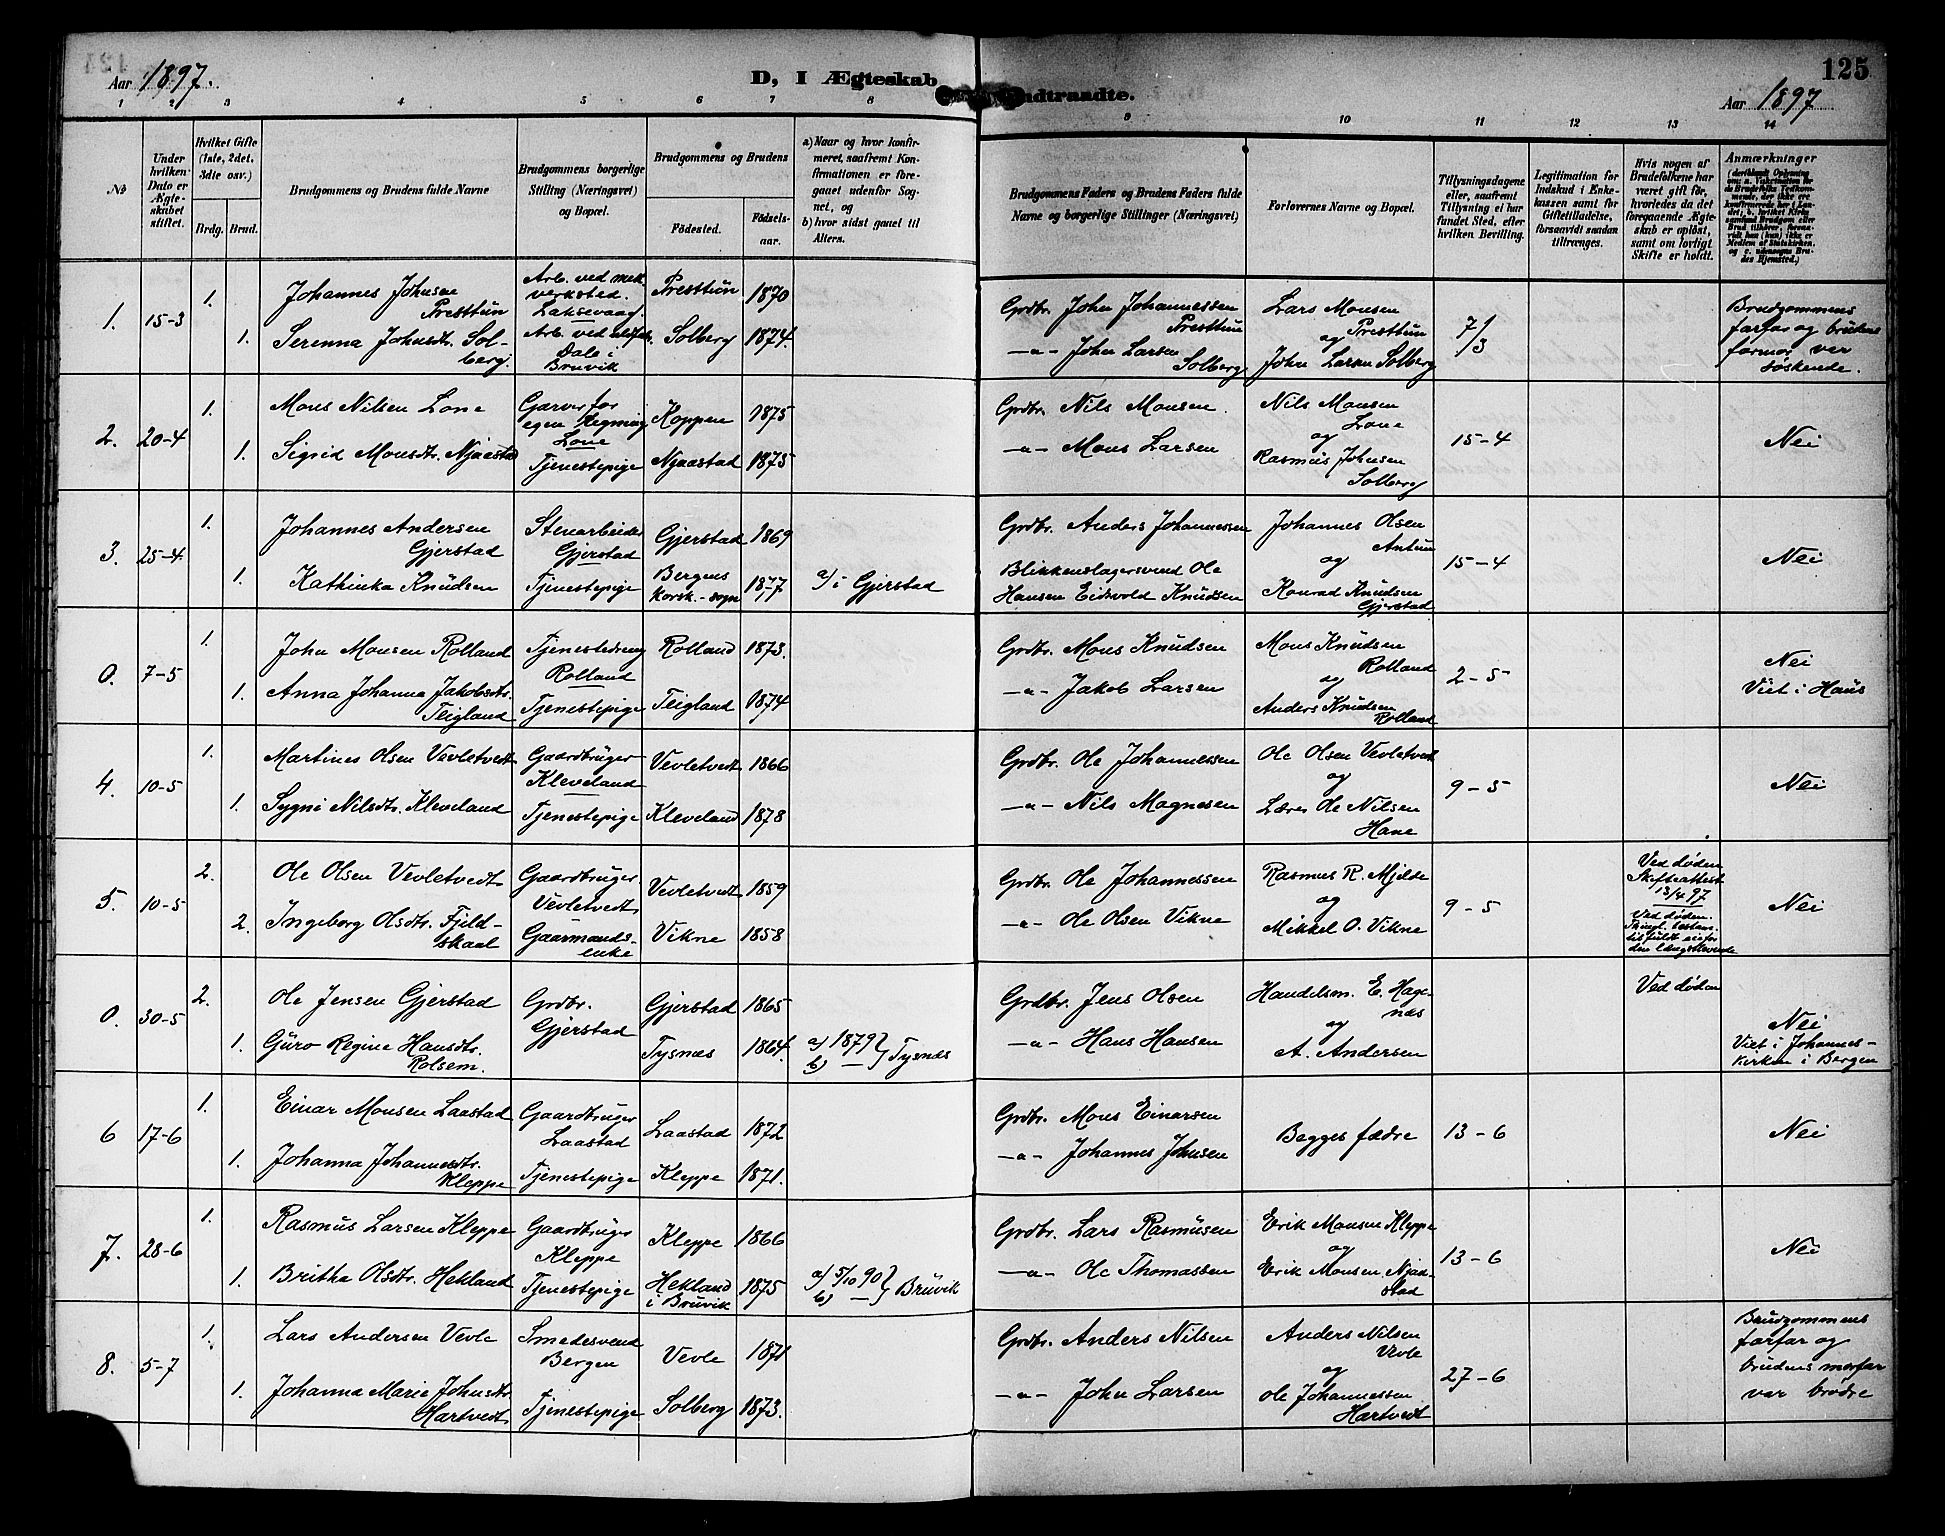 Aar 1897.
D, I Ægteskab Indtraadte.
125
Aar 1897
1 2 3 4 5 6 7 8 9 10 11 12 13 14
No
Under hvilken Dato er Ægteskabet stiftet.
Hvilket Gifte (1ste, 2det, 3die osv.)
Brdg. Brud.
Brudgommens og Brudens fulde Navne
Brudgommens borgerlige Stilling (Næringsvei) og Bopæl.
Brudgommens og Brudens
Fødested.
Fødselsaar.
a) Naar og hvor konfirmeret, saafremt Konfirmationen er foregaaet udenfor Sognet, og
b) hvor sidst gaaet til Alters.
Brudgommens Faders og Brudens Faders fulde Navne og borgerlige Stillinger (Næringsvei)
Forlovernes Navne og Bopæl.
Tillysningsdagene eller, saafremt Tillysning ei har fundet Sted, efter hvilken Bevilling.
Legitimation for Indskud i Enkekassen samt for Giftetilladelse, forsaavidt saadan tiltrænges.
Hvis nogen af Brudefolkene har været gift før, hvorledes da det foregaaende Ægteskab er opløst, samt om lovligt Skifte er holdt.
Anmærkninger
1. 15-3
1. Johannes Johnsen Presttun
Arb. ved mek verksted. Laksevaag.
Presttun 1870
1. Serenna Johnsdtr. Solberg.
Arb. ved Dale i Bruvik
Solberg 1874.
Grdbr. John Johannessen Presttun
-"- John Larsen Solberg
Lars Monsen Presttun
og
John Larsen Solberg
7/3
Brudgommens farfar og brudens farmor var søskende.
2. 20-4
1. Mons Nilsen Lone
Garver for egen Regning Lone
Koppen 1875
1. Sigrid Monsdtr. Njaastad
Tjenestepige
Njaastad 1875
Grdbr. Nils Monsen.
-"- Mons Larsen
Nils Monsen Lone
og
Rasmus Johnsen Solberg
15-4
Nei
3. 25-4.
1. Johannes Andersen Gjerstad
Stenarbeider Gjerstad
Gjerstad 1869
1. Kathinka Knudsen
Tjenestepige
Bergens Korsk.-sogn 1877
a) i Gjerstad
Grdbr. Anders Johannessen
Blikkenslagersvend Ole Hansen Eidsvold Knudsen
Johannes Olsen Antun
og
Konrad Knudsen Gjerstad
15-4
Nei
0. 7-5
1. John Monsen Rolland
Tjenestedreng Rolland
Rolland 1873.
1. Anna Johanna Jakobsdtr. Teigland
Tjenestepige
Teigland 1874
Grdbr. Mons Knudsen
-"- Jakob Larsen
Mons Knudsen Rolland
og
Anders Knudsen Rolland
2-5
Nei
Viet i Haus
4. 10-5
1. Martines Olsen Vevletvedt
Gaardbruger Kleveland
Vevletvedt 1866
1. Sygni Nilsdtr. Kleveland
Tjenestepige
Kleveland 1878
Grdbr. Ole Johannessen
-"- Nils Magnesen
Ole Olsen Vevletvedt
og
Lærer Ole Nilsen Hane
9-5
Nei
5. 10-5
2. Ole Olsen Vevletvedt
Gaardbruger Vevletvedt
Vevletvedt 1859
2. Ingeborg Olsdtr. Fjeldskaal
Gaarmandsenke
Vikne 1858
Grdbr. Ole Johannessen
-"- Ole Olsen Vikne
Rasmus R. Mjelde
og
Mikkel O. Vikne
9-5
Ved døden Skifteattest 13/4 97
Ved døden.
Nei
0. 30-5
2. Ole Jensen Gjerstad
Grdbr. Gjerstad
Gjerstad 1865
1. Guro Regine Hansdtr. Rolsem.
Tysnæs 1864.
a) 1879 b) — } Tysnæs
Grdbr. Jens Olsen
-"- Hans Hansen
Handelsm. E. Hagenæs
og
A. Andersen
Ved døden
Nei
Viet i Johanneskirken i Bergen
6 17-6
1. Einar Monsen Laastad
Gaardbruger Laastad
Laastad 1872
1. Johanna Johannesdtr. Kleppe
Tjenestepige
Kleppe 1871.
Grdbr. Mons Einarsen
-"- Johannes Johnsen
Begges fædre
13-6
Nei
7. 28-6
1. Rasmus Larsen Kleppe
Gaardbruger Kleppe
Kleppe 1866
1. Britha Olsdtr. Hekland
Tjenestepige
Hekland i Bruvik 1875
a) 5/10 90 b) — } Bruvik
Grdbr. Lars Rasmusen
-"- Ole Thomassen
Erik Monsen Kleppe
og
Erik Monsen Njaastad
13-6
Nei
8. 5-7
1. Lars Andersen Vevle
Smedesvend Bergen
Vevle 1871
1. Johanna Marie Johnsdtr. Hartvedt
Tjenestepige
Solberg 1873.
Grdbr. Anders Nilsen
-"- John Larsen
Anders Nilsen Vevle
og
Ole Johannessen Hartvedt
27-6
Brudgommens farfar og brudens morfar var brødre